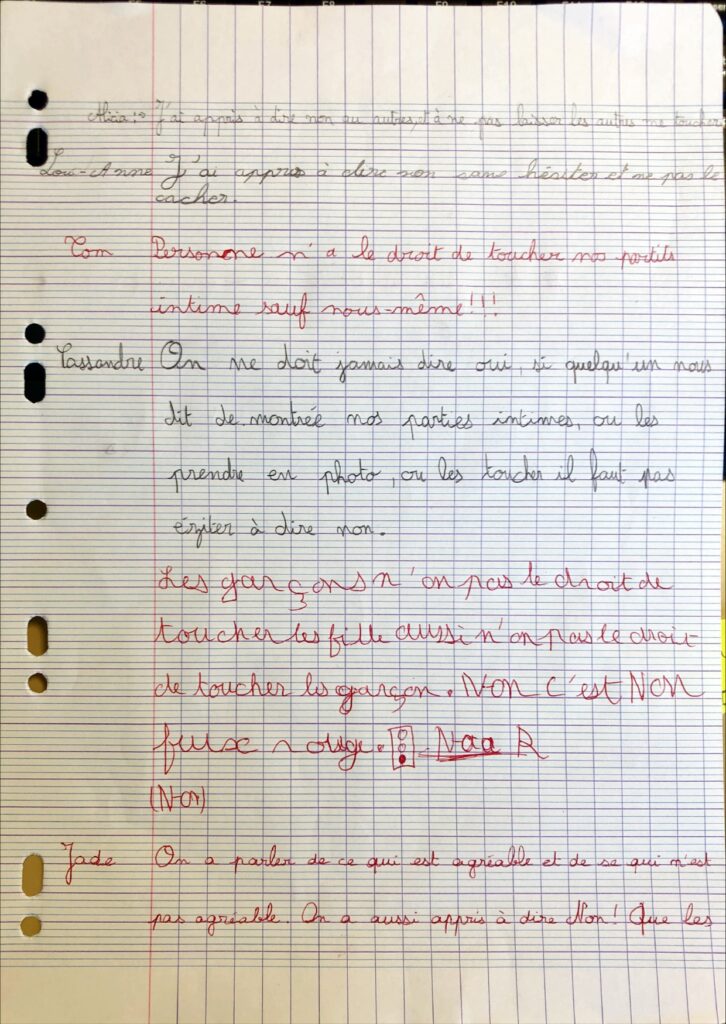 Alicia : J'ai appris à dire non au autres, et à ne pas laisser les autres me toucher
Lou-Anne J'ai appris à dire non sans hésiter et ne pas le
cacher.
Tom Personne n'a le droit de toucher nos partits
intime sauf nous-même!!!
Cassandre On ne doit jamais dire oui, si quelqu'un nous
dit de montrée nos parties intimes, ou les
prendre en photo, ou les toucher il faut pas
éziter à dire non.
Les garçons n'on pas le droit de
toucher les fille aussi n'on pas le droit
de toucher les garçon. Non C'est NON
fuse rouge.
(Non)
Jade On a parler de ce qui est agréable et de se qui n'est
pas agréable. On a aussi appris à dire Non! Que les